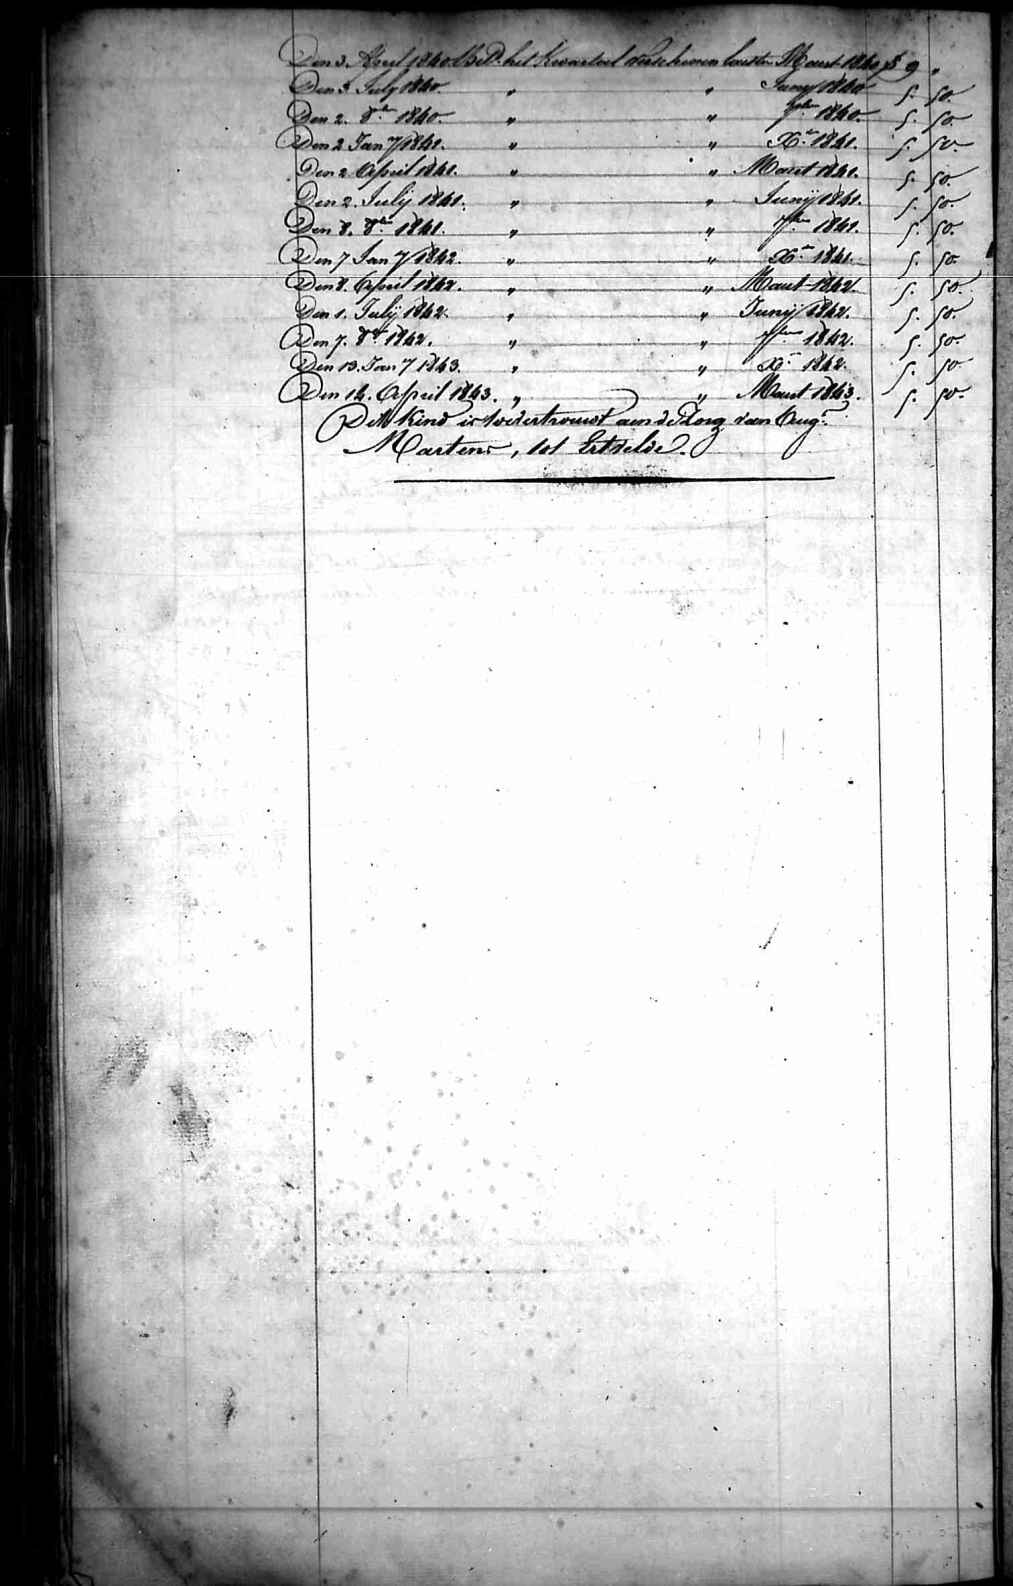 Den 3. April 1840 Bet.d het Kwartael verschenen laeste Maart 1840 f 9 "
Den 3. July 1840. " " Juny 1840 5. 50.
Den 2. 8.re 1840. " " 7bre 1840. 5. 50
Den 2 Jan.y 1841. " " X.re 1841. 5. 50.
Den 2 April 1841. " " Maart 1841. 5. 50.
Den 2. Julij 1841. " " Junij 1841. 5. 50.
Den 8. 8.re 1841. " " 7.bre 1841. 5. 50.
Den 7 Jan.y 1842. " " X.re 1841. 5. 50.
Den 8. April 1842. " " Maart 1842. 5. 50.
Den 1. Julij 1842. " " Junij 1842. 5. 50.
Den 7. 8re 1842. " " 7bre 1842. 5. 50.
Den 13. Jan.y 1843. " " X.re 1842. 5. 50
Den 14. April 1843. " " Maart 1843. 5. 50.
Dit Kind is toevertrouwt aen de Zorg van Aug.n
Martens, tot Ertvelde.